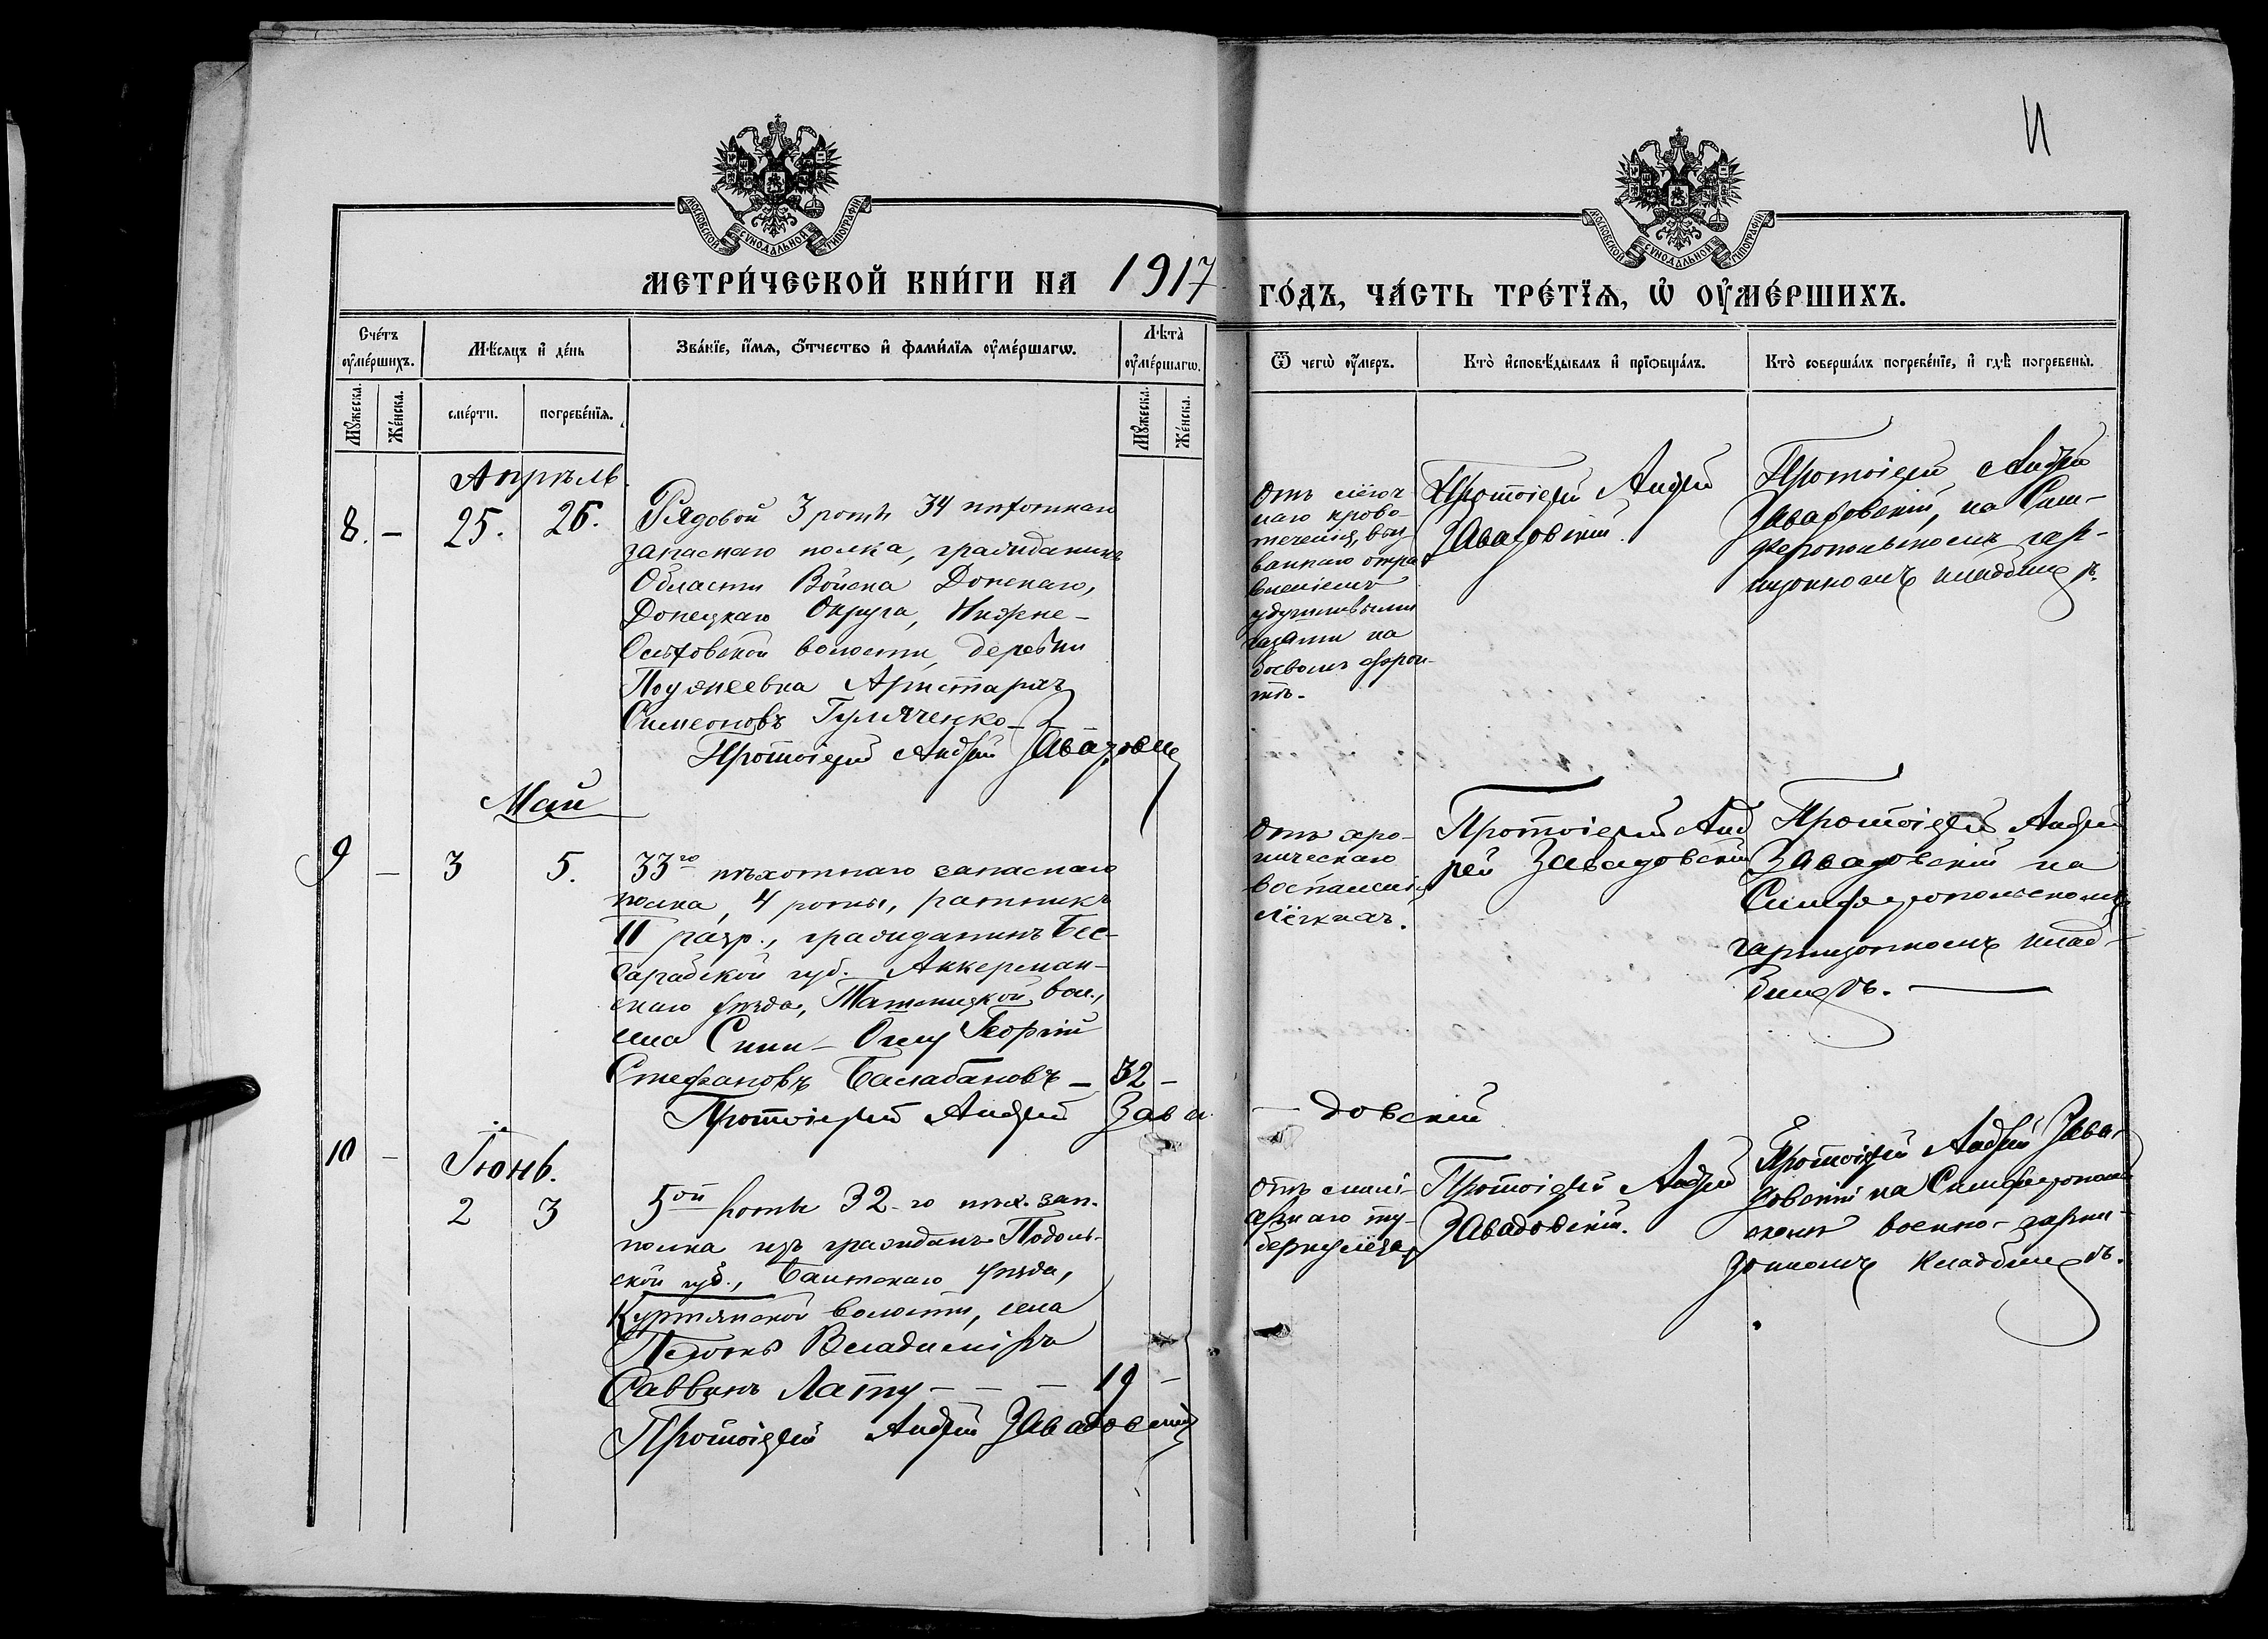 И
МОСКОВСКОЙ СѴНОДАЛЬНОЙ ТИПОГРАФІИ
МОСКОВСКОЙ СѴНОДАЛЬНОЙ ТИПОГРАФІИ
МЕТРИ́ЧЕСКОЙ КНИ́ГИ НА 1917
ГО́ДЪ, ЧА́СТЬ ТРЕ́ТЇѦ, Ѡ҆ ОУ҆МЕ́РШИХЪ.
Сче́тъ оу҆ме́ршихъ.
Мѣ́сяцъ и҆ де́нь
Зва́нїе, и҆́мѧ, ѻ҆́тчество и҆ фами́лїѧ оу҆ме́ршагѡ.
Лѣта̀ оу҆ме́ршагѡ.
Ѿ чегѡ̀ оу҆́меръ.
Кто̀ и҆сповѣ́дывалъ и҆ прїѻбща́лъ.
Кто̀ соверша́лъ погребе́нїе, и҆ гдѣ̀ погребены̀.
Мꙋ́жеска.
Же́нска.
сме́рти.
погребе́нїѧ.
Мꙋ́жеска.
Же́нска.
Апрѣль.
8. – 25. 26.
Рядовой 3 роты 34 пѣхотнаго
запаснаго полка, гражданинъ
Области Войска Донскаго,
Донецкаго Округа, Нижне-
Ольховской волости, деревни
Аристархъ
Симеоновъ Гуляченко –
Протоіерей Андрей Завадовскій
Отъ лёгоч
наго крово-
теченія, выз
ваннаго отра
вленіемъ
удушливыми
газами на
боевомъ фрон-
тѣ.
Протоіерей Андрей
Завадовскій.
Протоіерей Андрей
Завадовскій, на Сим-
феропольскомъ гар-
низонномъ кладбищѣ.
Май
9 – 3 5.
33го пѣхотнаго запаснаго
полка, 4 роты, ратникъ
II разр., гражданинъ Бес-
сарабской губ. Аккерман-
скаго уѣзда, вол.,
села Георгій
Стефановъ Балабановъ – 32 –
Протоіерей Андрей Зава
– довскій
Отъ хро-
ническаго
воспаленія
лёгкихъ.
Протоіерей Анд
рей Завадовскій
Протоіерей Андрей
Завадовскій на
Симферопольскомъ
гарнизонномъ клад-
бищѣ. –
10 –
Іюнь.
2 3
5ой роты 32-го пѣх. зап.
полка изъ гражданъ Подоль-
ской губ., Балтскаго уѣзда,
волости, села
Владиміръ
Саввинъ Лату – – – 19 –
Протоіерей Андрей Завадовскій
Отъ милі-
арнаго ту-
беркулёза
Протоіерей Андрей
Завадовскій.
Протоіерей Андрей Зава-
довскій на Симферополь
скомъ военно-гарни-
зонномъ кладбищѣ.